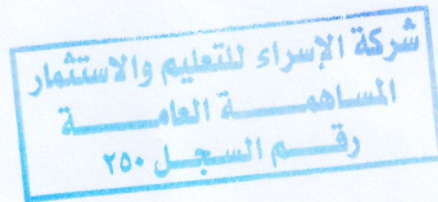 شركة الإسراء للتعليم والاستثمار
المساهمة العامة
رقم السجل ٢٥٠